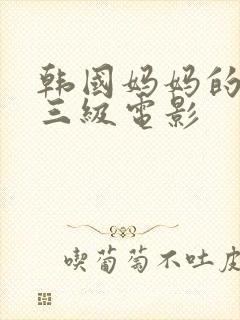 韩國妈妈的
三級電影
喫葡萄不吐皮